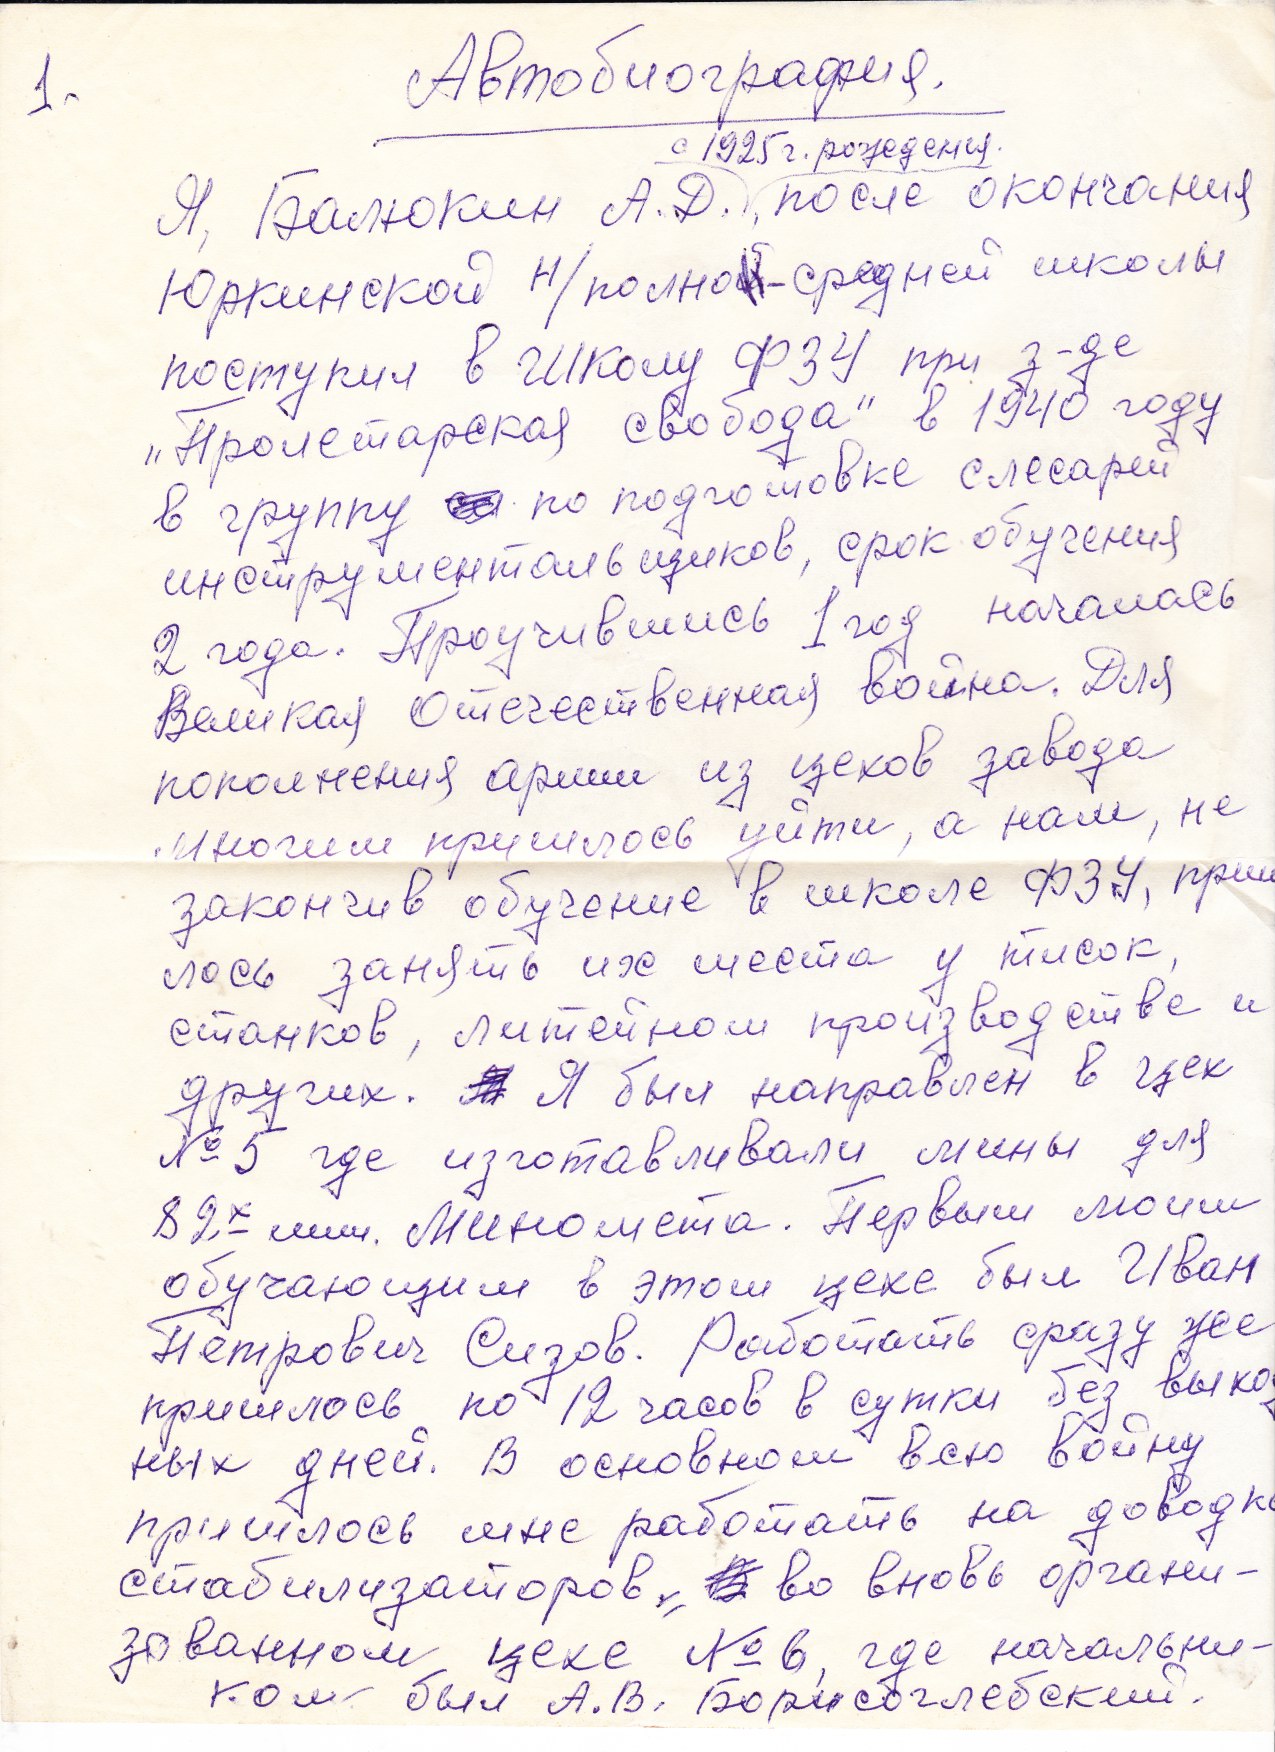 1.
Автобиография.
с 1925 г. рождения.
Я, Балюкин А.Д., после окончания
Юркинской н/полной-средней школы
поступил в Школу ФЗУ при з-де
„Пролетарская свобода" в 1940 году
в группу по подготовке слесарей
инструментальщиков, срок обучения
2 года. Проучившись 1 год началась
Великая Отечественная война. Для
пополнения армии из цехов завода
многим пришлось уйти, а нам, не
закончив обучение в школе ФЗУ, приш
лось занять их места у тисок,
станков, литейном производстве и
других. Я был направлен в цех
№ 5 где изготавливали мины для
82х мм. Миномета. Первым моим
обучающим в этом цехе был Иван
Петрович Сизов. Работать сразу же
пришлось по 12 часов в сутки без выход
ных дней. В основном всю войну
пришлось мне работать на доводке
стабилизаторов, во вновь органи-
зованном цехе № 6, где начальни-
ком был А.В. Борисоглебский.